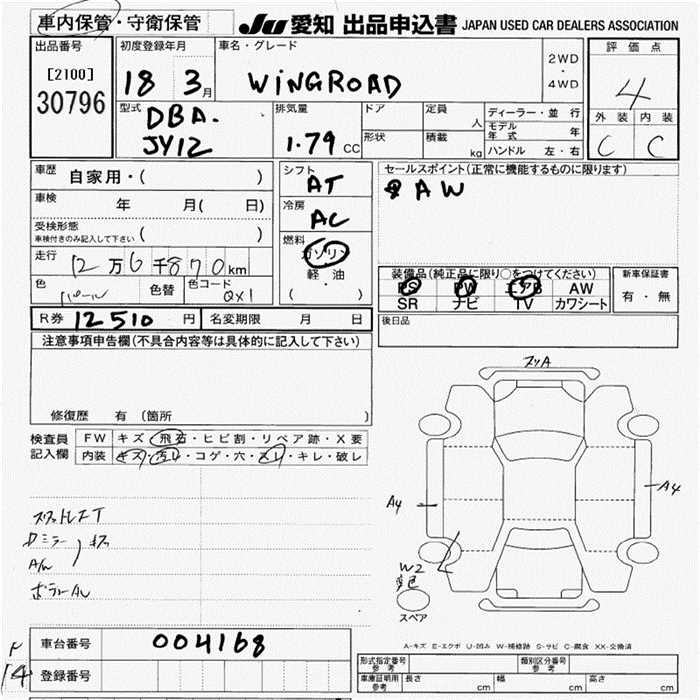 車内保管・守衛保管
JU 愛知 出品申込書 JAPAN USED CAR DEALERS ASSOCIATION
出品番号
[2100]
30796
初度登録年月
18 3月
車名・グレード
WINGROAD
2WD
・
4WD
評価点
4
外装 内装
C C
型式
DBA-
JY12
排気量
1.79 CC
ドア
形状
定員 人
積載 kg
ディーラー・並行
モデル年式 年
ハンドル 左・右
車歴
自家用・( )
車検 年 月( 日)
受検形態
車検付きのみ記入して下さい ( )
走行
12万6千870km
色
パール
色替
色コード
QX1
シフト
AT
冷房
AC
燃料
ガソリン
軽・油
( )
セールスポイント(正常に機能するものに限ります)
AW
装備品(純正品に限り○をつけてください)
PS PW エアB AW
SR ナビ TV カワシート
新車保証書
有・無
R券 12510 円
名変期限 月 日
後日品
注意事項申告欄(不具合内容等は具体的に記入して下さい)
修復歴 有(箇所 )
検査員
記入欄
FW キズ・飛石・ヒビ割・リペア跡・X要
内装 キズ・汚レ・コゲ・穴・スレ・キレ・破レ
ミラー キズ
A/W
A4
A4
W2
スペア
A-キズ E-エクボ U-凹み W-補修跡 S-サビ C-腐食 XX-交換済
F
14
車台番号 004168
登録番号
形式指定番号 参考
類別区分番号 参考
車庫証明用 参考 長さ cm 幅 cm 高さ cm